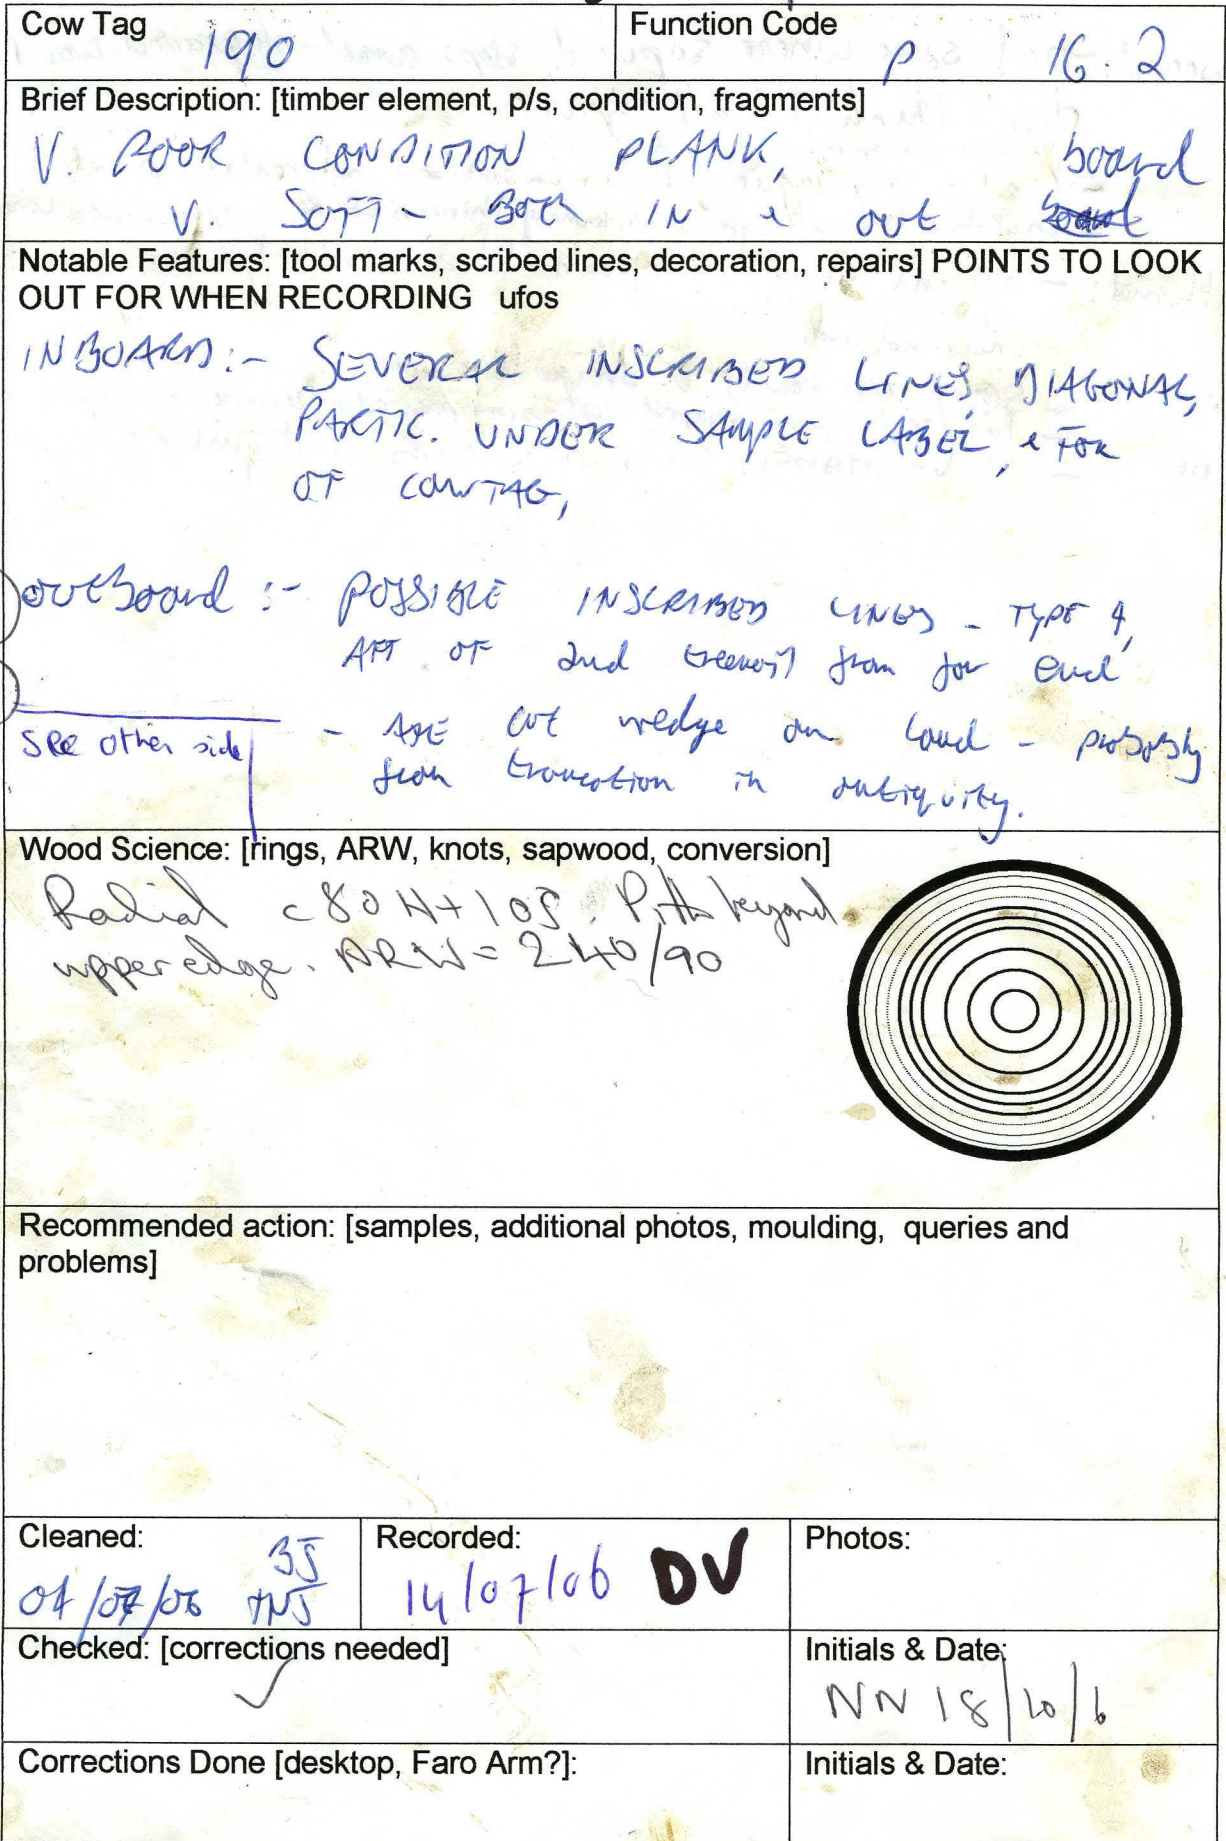 Cow Tag
190
Function Code
P 16.2
Brief Description: [timber element, p/s, condition, fragments]
V. POOR CONDITION PLANK,
V. SOFT - Both IN & out board
Notable Features: [tool marks, scribed lines, decoration, repairs] POINTS TO LOOK
OUT FOR WHEN RECORDING ufos
INBOARD:- SEVERAL INSCRIBED LINES, DIAGONAL,
PARTIC. UNDER SAMPLE LABEL, & FOR
OF COWTAG,
outboard :- POSSIBLE INSCRIBED LINES - TYPE 4,
AFT OF 2nd treenail from for end
- AXE cut wedge on land - probably
from truncation in antiquity.
see other side
Wood Science: [rings, ARW, knots, sapwood, conversion]
Radial c80H+10S. Pith beyond
upper edge. ARW = 240/90
Recommended action: [samples, additional photos, moulding, queries and
problems]
Cleaned:
BJ
04/07/06
Recorded:
14/07/06 DV
Photos:
Checked: [corrections needed]
✓
Initials & Date:
NN 18/10/6
Corrections Done [desktop, Faro Arm?]:
Initials & Date: